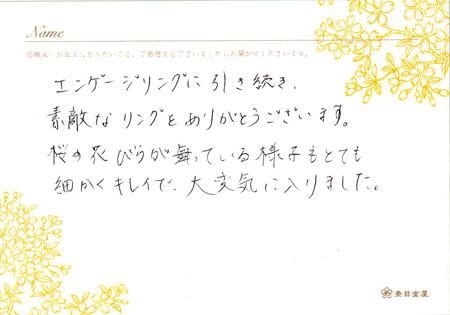 Name
◎職人へお伝えになりたいこと、ご感想などございましたらお聞かせくださいませ。
エンゲージリングに引き続き、
素敵なリングをありがとうございます。
桜の花びらが舞っている様子もとても
細かくキレイで、大変気に入りました。
杢目金屋